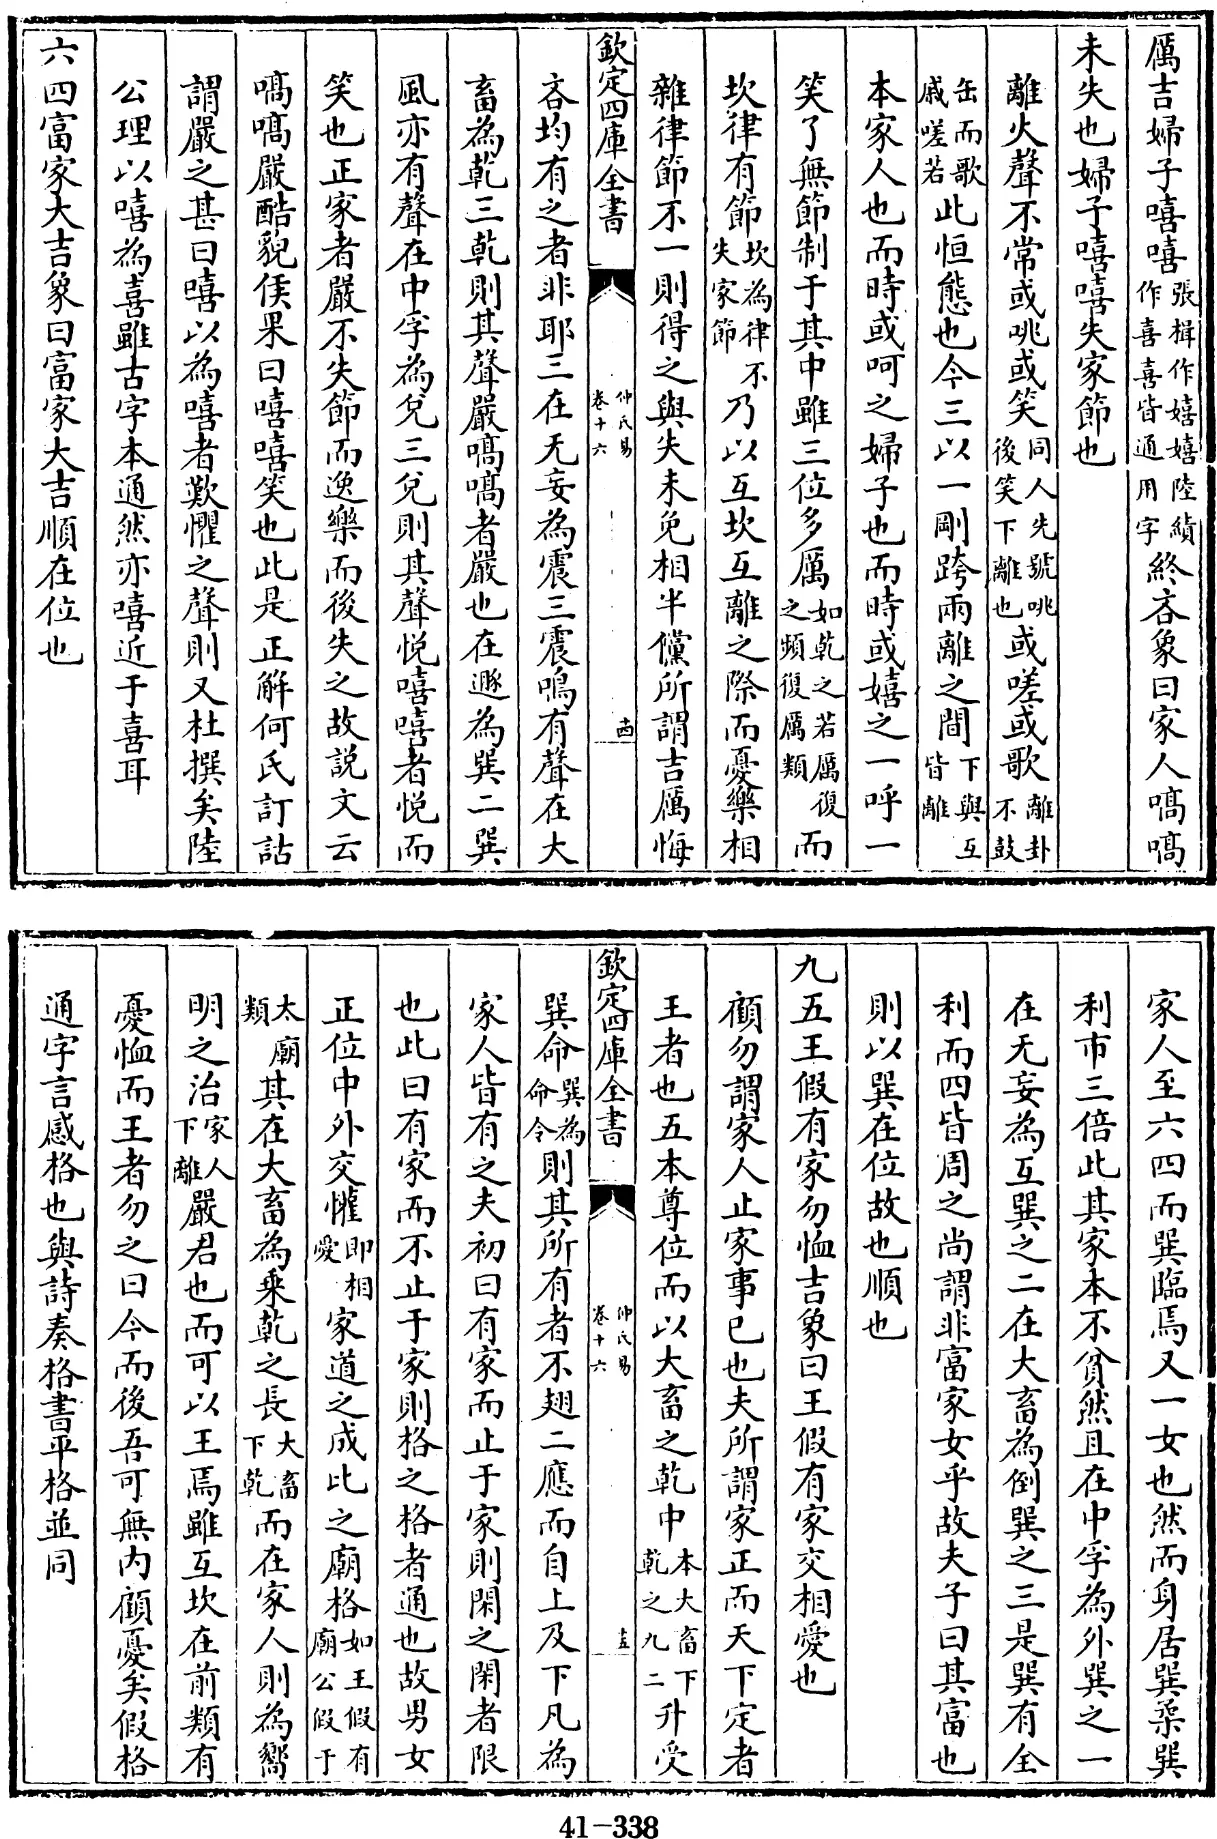 厲吉婦子嘻嘻張揖作嬉嬉陸績作喜喜皆通用字終吝象曰家人嗃嗃
未失也婦子嘻嘻失家節也
離火聲不常或咷或笑同人先號咷後笑下離也或嗟或歌離卦不鼓
缶而歌戚嗟若此恒態也今三以一剛跨兩離之間下與互皆離
本家人也而時或呵之婦子也而時或嬉之一呼一
笑了無節制于其中雖三位多厲如乾之若厲復之頻復厲類而
坎律有節坎為律不失家節乃以互坎互離之際而憂樂相
雜律節不一則得之與失未免相半儻所謂吉厲悔
欽定四庫全書 仲氏易卷十六 十四
吝均有之者非耶三在无妄為震三震鳴有聲在大
畜為乾三乾則其聲嚴嗃嗃者嚴也在遯為巽二巽
風亦有聲在中孚為兌三兌則其聲悅嘻嘻者悅而
笑也正家者嚴不失節而逸樂而後失之故說文云
嗃嗃嚴酷貌侯果曰嘻嘻笑也此是正解何氏訂詁
謂嚴之甚曰嘻以為嘻者歎懼之聲則又杜撰矣陸
公理以嘻為喜雖古字本通然亦嘻近于喜耳
六四富家大吉象曰富家大吉順在位也
家人至六四而巽臨焉又一女也然而身居巽橤巽
利市三倍此其家本不貧然且在中孚為外巽之一
在无妄為互巽之二在大畜為倒巽之三是巽有全
利而四皆周之尚謂非富家女乎故夫子曰其富也
則以巽在位故也順也
九五王假有家勿恤吉象曰王假有家交相愛也
顧勿謂家人止家事已也夫所謂家正而天下定者
王者也五本尊位而以大畜之乾中本大畜下乾之九二升受
欽定四庫全書 仲氏易卷十六 十五
巽命巽為命令則其所有者不翅二應而自上及下凡為
家人皆有之夫初曰有家而止于家則閑之閑者限
也此曰有家而不止于家則格之格者通也故男女
正位中外交懽即相愛家道之成比之廟格如王假有廟公假于
太廟類其在大畜為乘乾之長大畜下乾而在家人則為嚮
明之治家人下離嚴君也而可以王焉雖互坎在前類有
憂恤而王者勿之曰今而後吾可無內顧憂矣假格
通字言感格也與詩奏格書平格並同
41-338